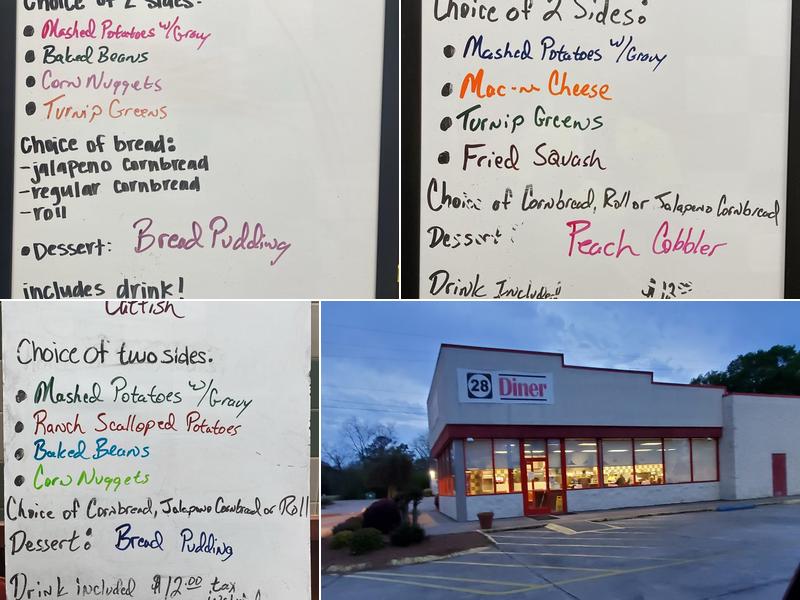 Choice of 2 sides:
• Mashed Potatoes w/Gravy
• Baked Beans
• Corn Nuggets
• Turnip Greens
Choice of bread:
-jalapeno cornbread
-regular cornbread
-roll
• Dessert: Bread Pudding
includes drink!
Choice of 2 Sides:
• Mashed Potatoes w/Gravy
• Mac-n Cheese
• Turnip Greens
• Fried Squash
Choice of Cornbread, Roll or Jalapeno Cornbread
Dessert: Peach Cobbler
Drink Included! $12.00
Catfish
Choice of two sides.
• Mashed Potatoes w/Gravy
• Ranch Scalloped Potatoes
• Baked Beans
• Corn Nuggets
Choice of Cornbread, Jalapeno Cornbread or Roll
Dessert: Bread Pudding
Drink included $12.00 tax
28 Diner